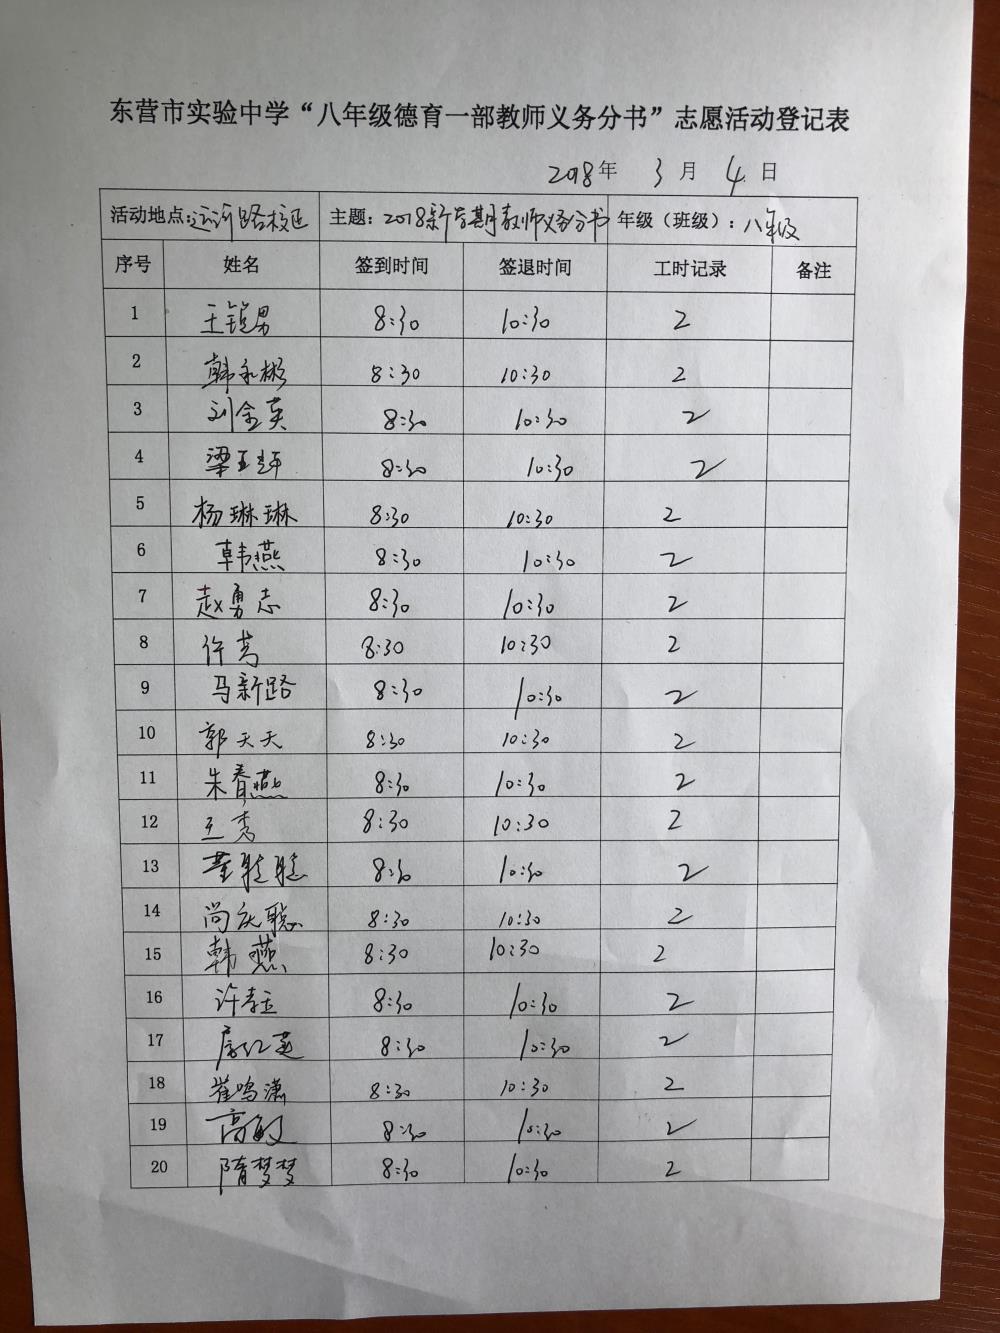 东营市实验中学“八年级德育一部教师义务分书”志愿活动登记表
2018年 3月 4日
活动地点:运河路校区 主题:2018新学期教师义务分书 年级(班级):八年级
序号 姓名 签到时间 签退时间 工时记录 备注
1 王锐男 8:30 10:30 2
2 韩永彬 8:30 10:30 2
3 刘金英 8:30 10:30 2
4 梁玉 8:30 10:30 2
5 杨琳琳 8:30 10:30 2
6 韩燕 8:30 10:30 2
7 赵勇志 8:30 10:30 2
8 许芳 8:30 10:30 2
9 马新路 8:30 10:30 2
10 郭天天 8:30 10:30 2
11 朱春燕 8:30 10:30 2
12 王秀 8:30 10:30 2
13 董聪聪 8:30 10:30 2
14 尚庆聪 8:30 10:30 2
15 韩燕 8:30 10:30 2
16 许孝 8:30 10:30 2
17 房红莲 8:30 10:30 2
18 崔鸣潇 8:30 10:30 2
19 高敏 8:30 10:30 2
20 隋梦梦 8:30 10:30 2